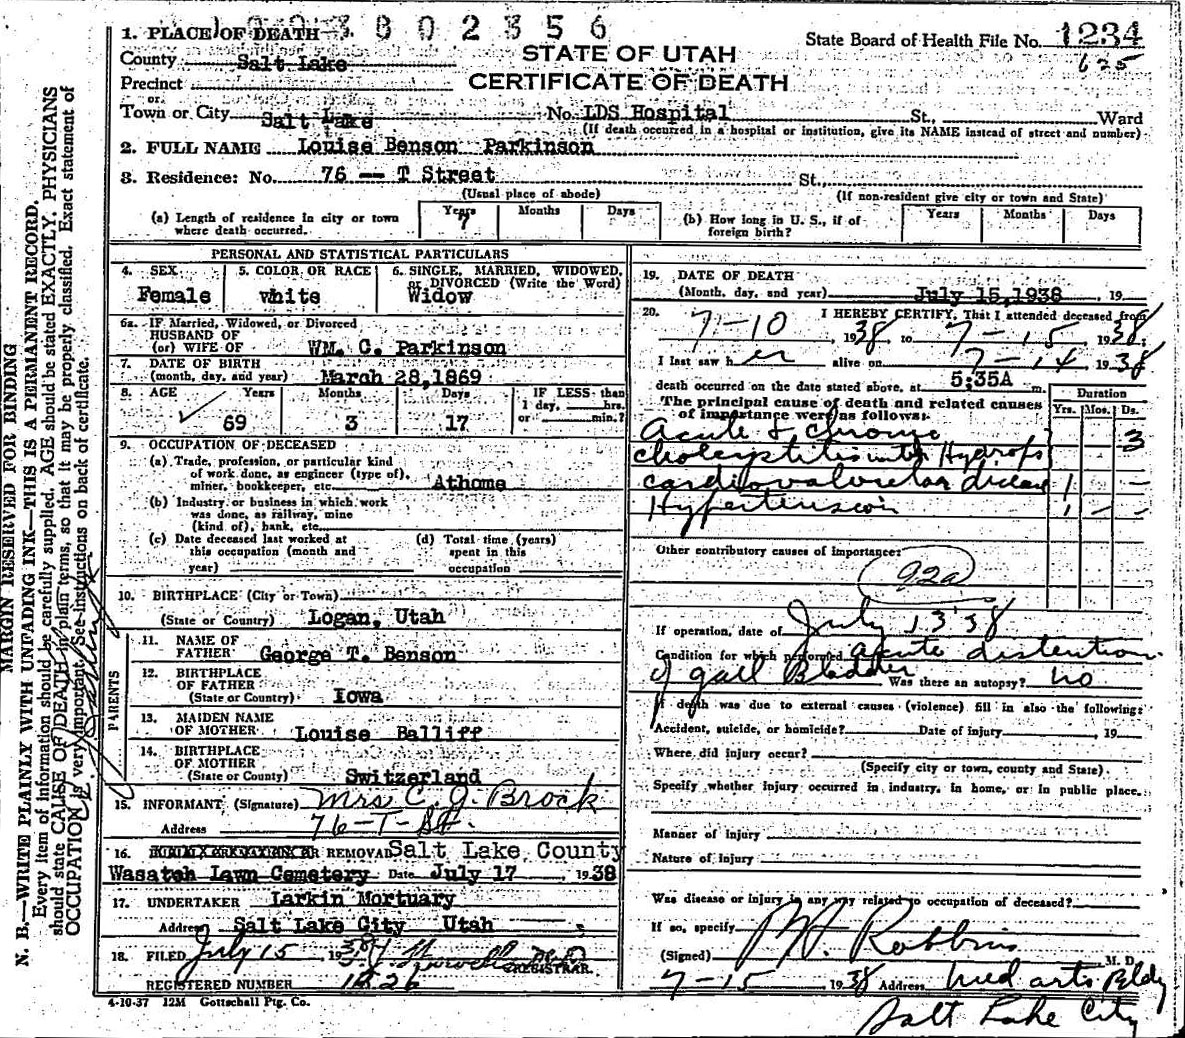 1. PLACE OF DEATH
State Board of Health File No. 1234
625
STATE OF UTAH
CERTIFICATE OF DEATH
County Salt Lake
Precinct
or
Town or City Salt Lake No. LDS Hospital St., Ward
(If death occurred in a hospital or institution, give its NAME instead of street and number)
2. FULL NAME Louise Benson Parkinson
3. Residence: No. 76 -- T Street St.,
(Usual place of abode) (If non-resident give city or town and State)
(a) Length of residence in city or town where death occurred. Years 7 Months Days
(b) How long in U. S., if of foreign birth? Years Months Days
PERSONAL AND STATISTICAL PARTICULARS
4. SEX Female
5. COLOR OR RACE white
6. SINGLE, MARRIED, WIDOWED, or DIVORCED (Write the Word) Widow
6a. IF Married, Widowed, or Divorced
HUSBAND OF
(or) WIFE OF WM. C. Parkinson
7. DATE OF BIRTH
(month, day, and year) March 28,1869
8. AGE Years 69 Months 3 Days 17 IF LESS than 1 day, hrs. or min.?
9. OCCUPATION OF DECEASED
(a) Trade, profession, or particular kind
of work done, as engineer (type of),
miner, bookkeeper, etc. Athome
(b) Industry or business in which work
was done, as railway, mine
(kind of), bank, etc.
(c) Date deceased last worked at
this occupation (month and
year)
(d) Total time (years)
spent in this
occupation
10. BIRTHPLACE (City or Town)
(State or Country) Logan, Utah
PARENTS
11. NAME OF
FATHER George T. Benson
12. BIRTHPLACE
OF FATHER
(State or Country) Iowa
13. MAIDEN NAME
OF MOTHER Louise Balliff
14. BIRTHPLACE
OF MOTHER
(State or County) Switzerland
15. INFORMANT (Signature) Mrs C. J. Brock
Address 76-T-St.
16. OR REMOVAL Salt Lake County
Wasatch Lawn Cemetery Date July 17 1938
17. UNDERTAKER Larkin Mortuary
Address Salt Lake City Utah
18. FILED July 15 1938
REGISTRAR.
REGISTERED NUMBER
4-10-37 12M Gottschall Ptg. Co.
19. DATE OF DEATH
(Month, day, and year) July 15,1938, 19
20. I HEREBY CERTIFY, That I attended deceased from
7-10, 1938, to 7-15 1938;
I last saw her alive on 7-14 1938
death occurred on the date stated above, at 5:35A m.
The principal cause of death and related causes
of importance were as follows:
Duration
Yrs. Mos. Ds.
Acute & chronic 3
cholecystitis with Hydrops
cardiovascular disease 1 - -
Hypertension 1 - -
Other contributory causes of importance:
92a
If operation, date of July 13 '38
Condition for which performed Acute distention
of gall Bladder Was there an autopsy? no
If death was due to external causes (violence) fill in also the following:
Accident, suicide, or homicide? Date of injury, 19
Where did injury occur?
(Specify city or town, county and State)
Specify whether injury occurred in industry, in home, or in public place.
Manner of Injury
Nature of Injury
Was disease or injury in any way related to occupation of deceased?
If so, specify
(Signed) Robbins M. D.
7-15 1938 Address Med arts Bldg
Salt Lake City
MARGIN RESERVED FOR BINDING
N. B.—WRITE PLAINLY WITH UNFADING INK—THIS IS A PERMANENT RECORD.
Every item of information should be carefully supplied. AGE should be stated EXACTLY. PHYSICIANS
should state CAUSE OF DEATH in plain terms, so that it may be properly classified. Exact statement of
OCCUPATION is very important. See instructions on back of certificate.